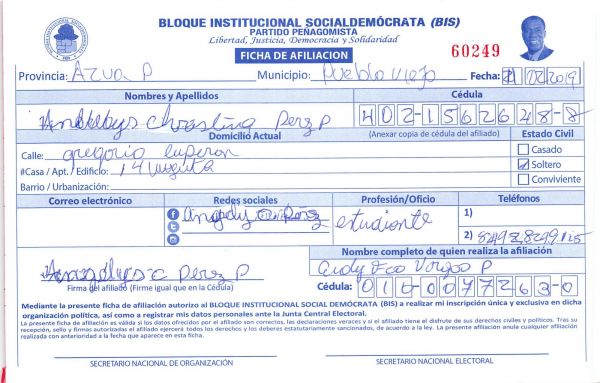 BLOQUE INSTITUCIONAL SOCIALDEMÓCRATA (BIS)
PARTIDO PEÑAGOMISTA
Libertad, Justicia, Democracia y Solidaridad
FICHA DE AFILIACION
60249
Provincia: Azua P Municipio: Pueblo viejo Fecha: 02 2019
Nombres y Apellidos Cédula
Perez P 402-1562648-8
Domicilio Actual (Anexar copia de cédula del afiliado) Estado Civil
Calle: gregorio luperon Casado
#Casa / Apt. / Edificio: 14 Soltero
Barrio / Urbanización: Conviviente
Correo electrónico Redes sociales Profesión/Oficio Teléfonos
estudiante 1)
2)
Nombre completo de quien realiza la afiliación
Perez P
Firma del afiliado (Firme igual que en la Cédula) Cédula: 010-0077263-0
Mediante la presente ficha de afiliación autorizo al BLOQUE INSTITUCIONAL SOCIAL DEMÓCRATA (BIS) a realizar mi inscripción única y exclusiva en dicha
organización política, así como a registrar mis datos personales ante la Junta Central Electoral.
La presente ficha de afiliación es válida si los datos ofrecidos por el afiliado son correctos, las declaraciones veraces y si el afiliado tiene el disfrute de sus derechos civiles y políticos. Tras su
recepción, sello y firmas autorizadas el afiliado ejercerá todos los derechos y los deberes estatutariamente sancionados, de acuerdo a la ley. La presente afiliación anula cualquier afiliación
realizada con anterioridad a la fecha que aparece en esta ficha.
SECRETARIO NACIONAL DE ORGANIZACIÓN SECRETARIO NACIONAL ELECTORAL